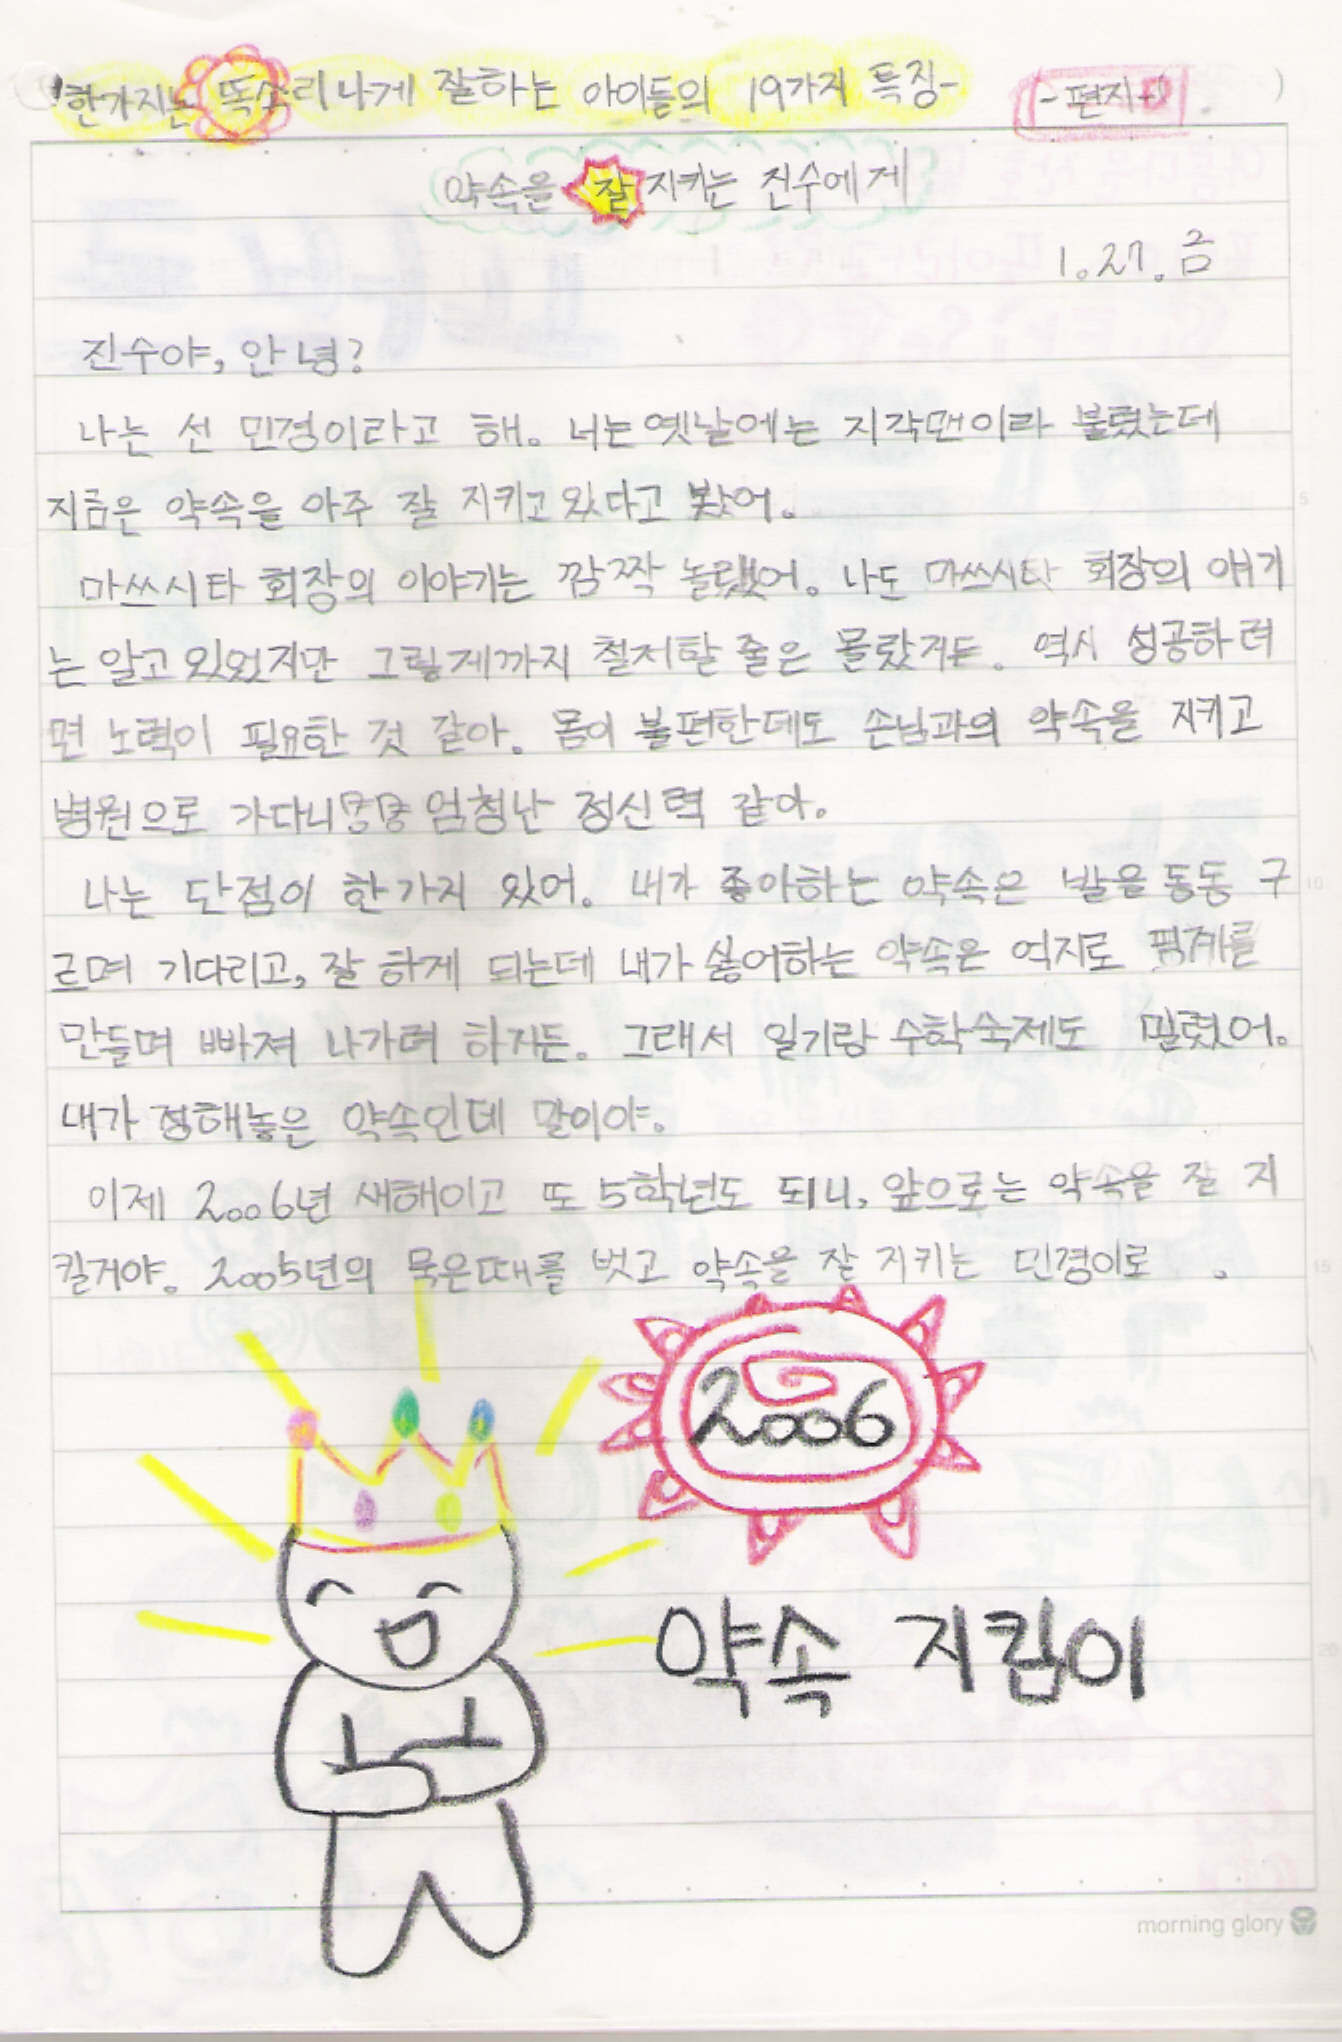 '한가지는 똑소리나게 잘하는 아이들의 19가지 특징-
-편지-
약속을 잘 지키는 진수에게
1.27.금
진수야, 안녕?
나는 선 민경이라고 해. 너는 옛날에는 지각맨이라 불렸는데
지금은 약속을 아주 잘 지키고 있다고 봤어.
마쓰시타 회장의 이야기는 깜짝 놀랬어. 나도 마쓰시타 회장의 얘기
는 알고 있었지만 그렇게까지 철저할 줄은 몰랐거든. 역시 성공하려
면 노력이 필요한 것 같아. 몸이 불편한데도 손님과의 약속을 지키고
병원으로 가다니 엄청난 정신력 같아.
나는 단점이 한가지 있어. 내가 좋아하는 약속은 발을 동동 구
르며 기다리고, 잘 하게 되는데 내가 싫어하는 약속은 억지로 핑계를
만들며 빠져 나가려 하거든. 그래서 일기랑 수학숙제도 밀렸어.
내가 정해놓은 약속인데 말이야.
이제 2006년 새해이고 또 5학년도 되니, 앞으로는 약속을 잘 지
킬거야. 2005년의 묵은때를 벗고 약속을 잘 지키는 민경이로 .
2006
약속 지킴이
morning glory
5
10
15
20